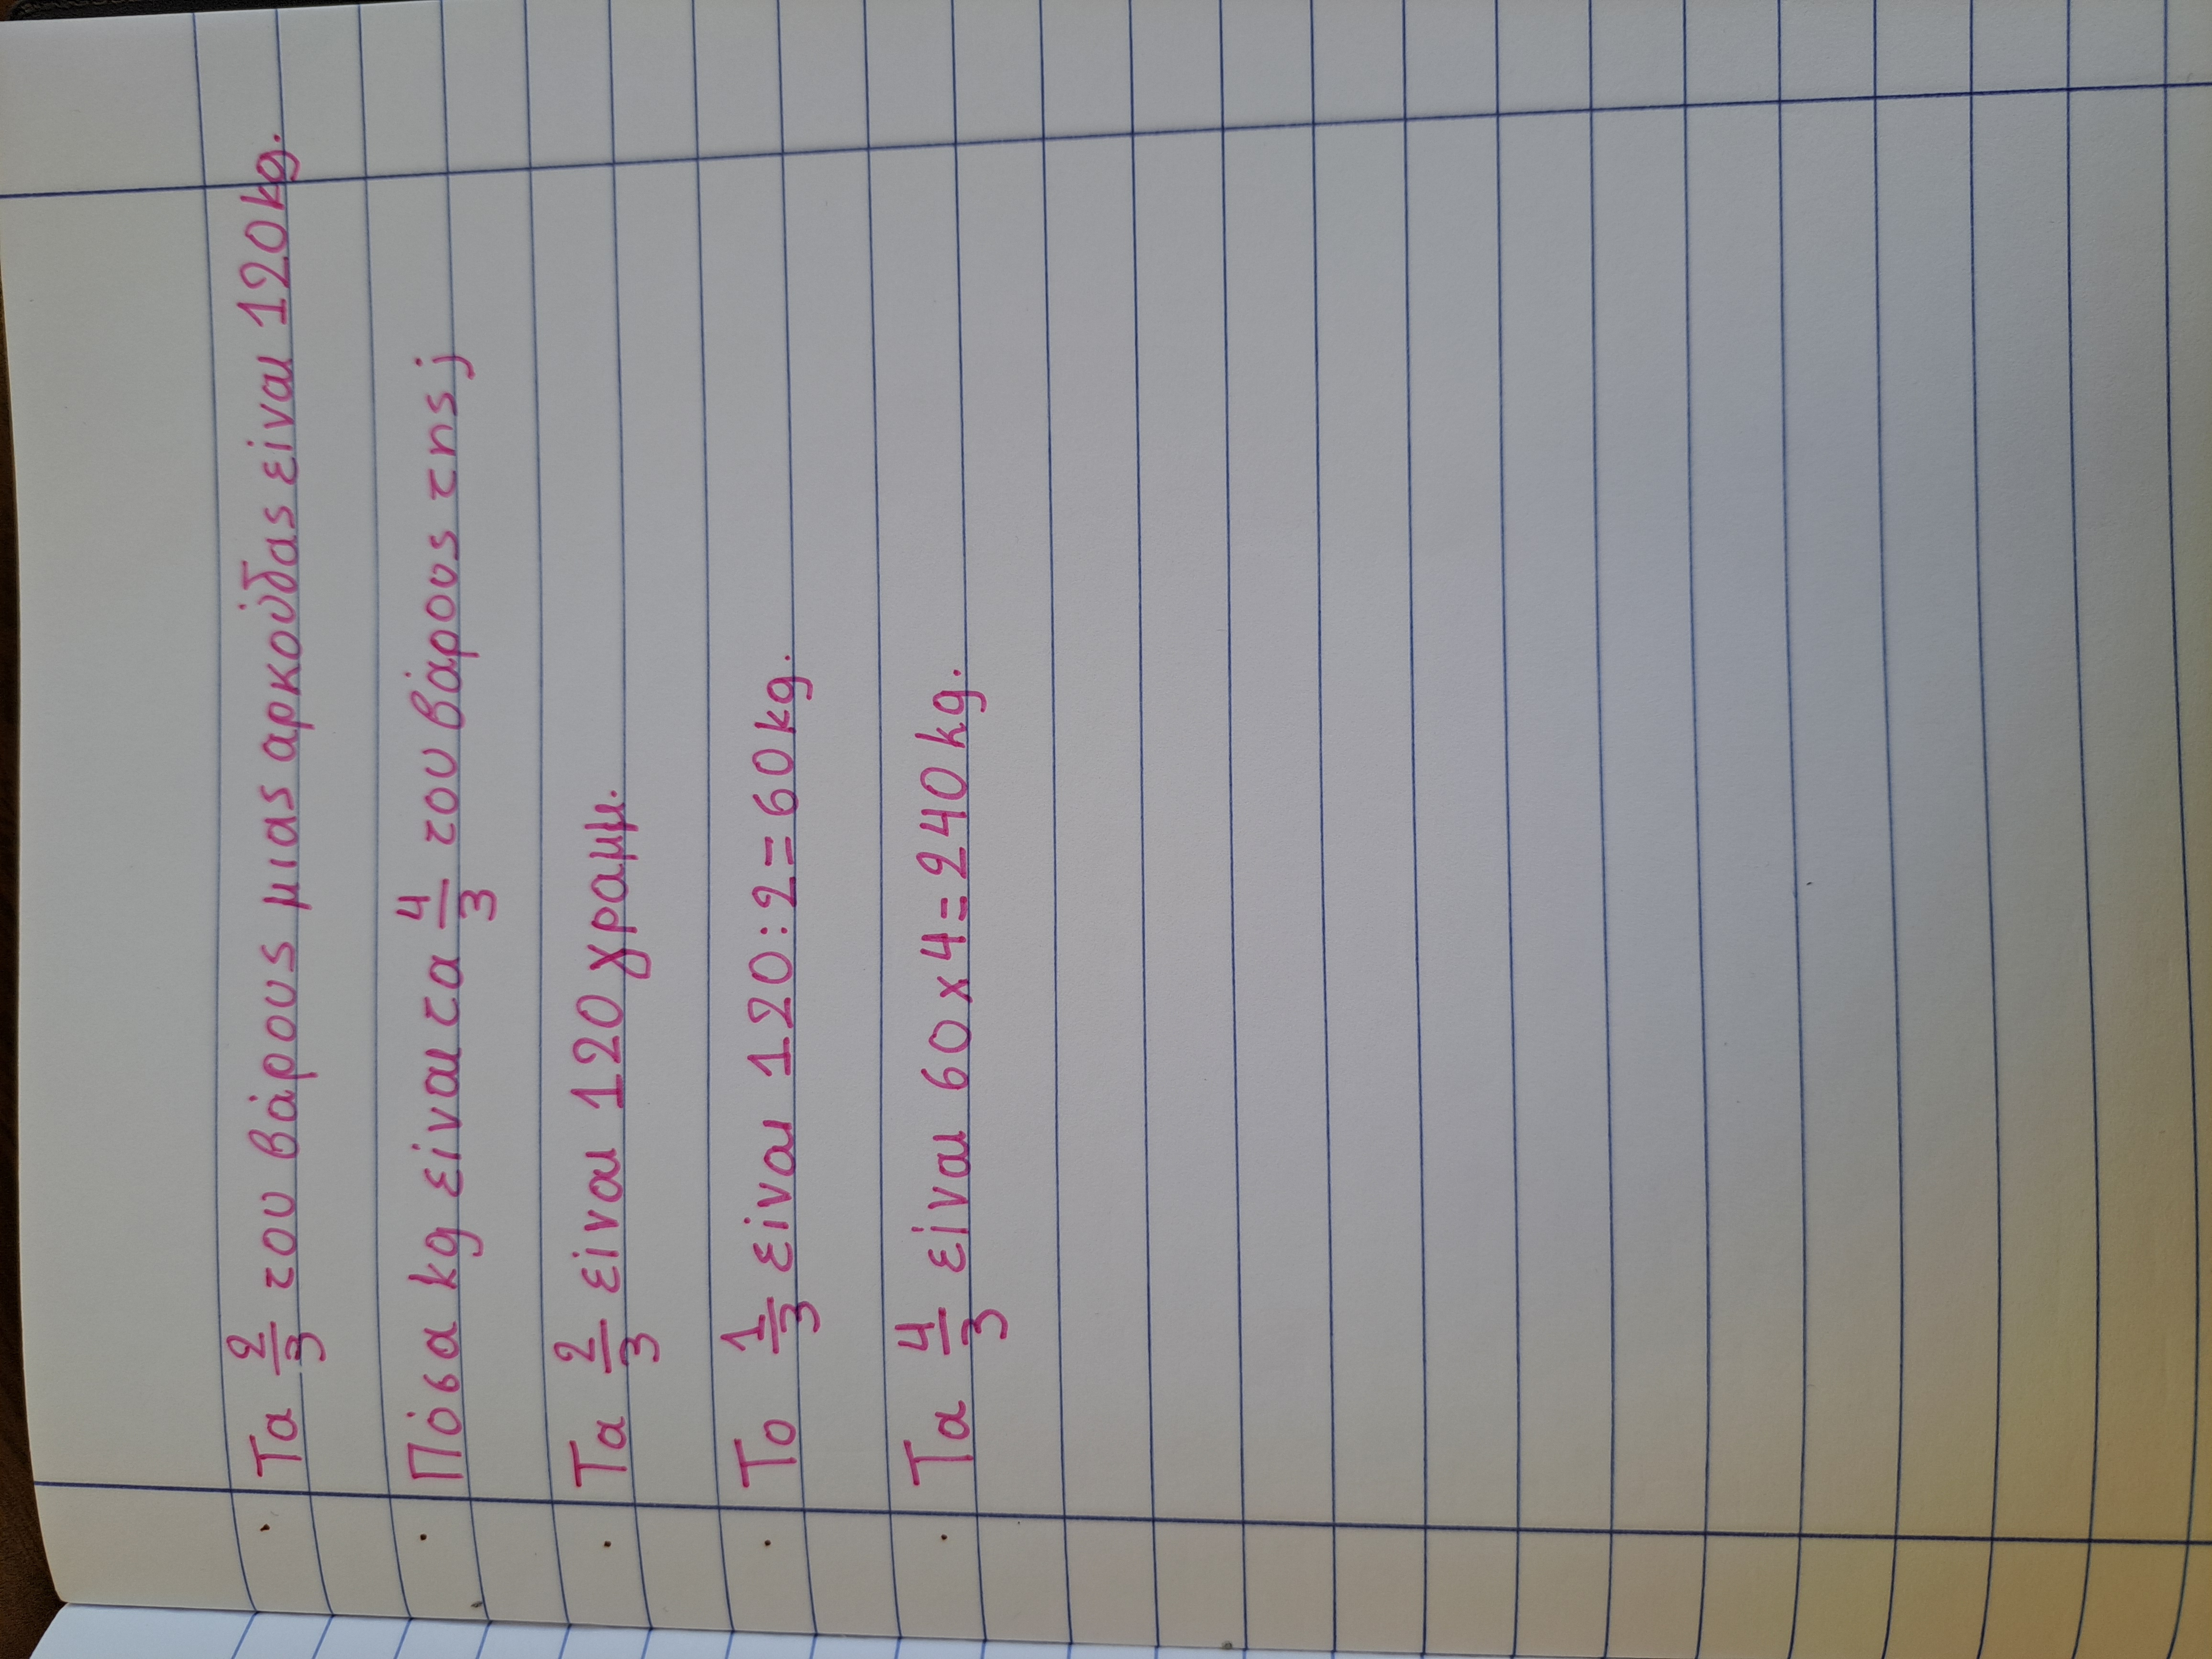 Τα 2/3 του βάρους μιας αρκούδας είναι 120kg.
Πόσα kg είναι τα 4/3 του βάρους της;
Τα 2/3 είναι 120 γραμμ.
Το 1/3 είναι 120:2=60kg.
Τα 4/3 είναι 60x4=240kg.